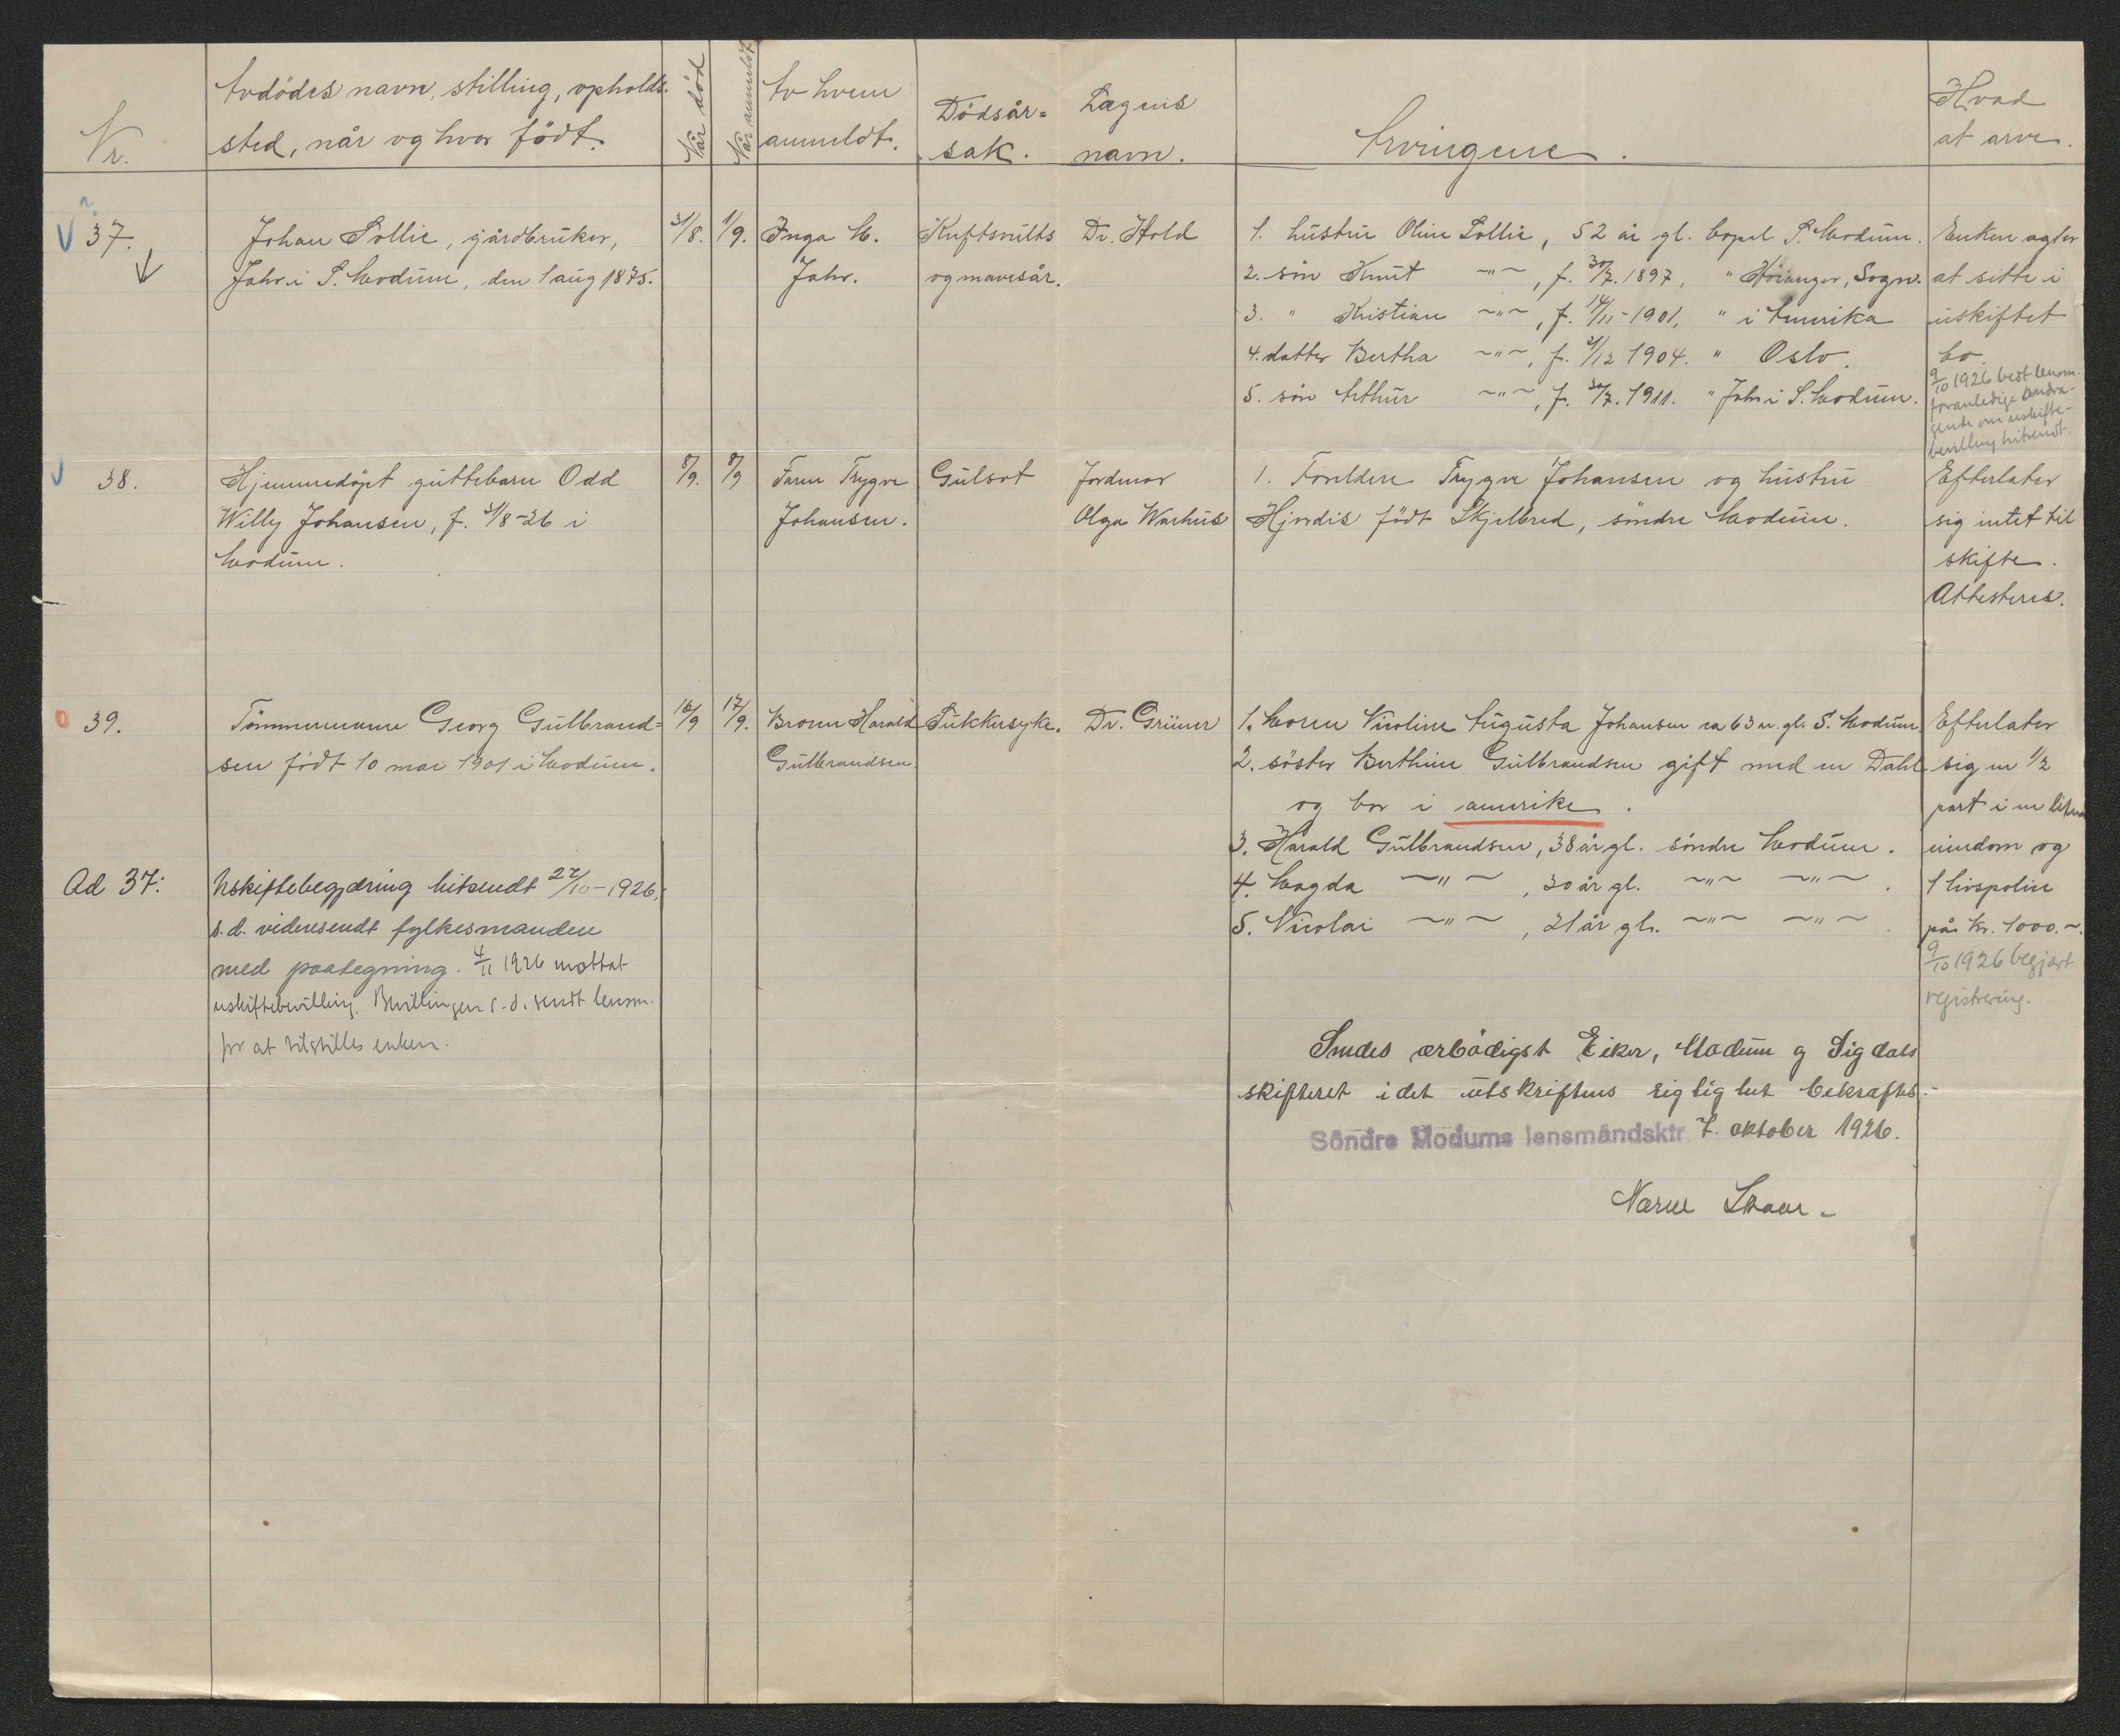 Nr.
Avdödes navn, stilling, opholds-
sted, når og hvor födt.
Når död
Når anmeldt
Av hvem
anmeldt.
Dödsår-
sak.
Lægens
navn.
Arvingene.
Hvad
at arve.
37.
Johan Lollie, gårdbruker,
Jahr i S. Modum, den 1 aug 1875.
31/8.
1/9.
Inga M.
Jahr.
og mavesår.
Dr. Hold
1. hustru Oline Lollie, 52 år gl. bopel S. Modum.
2. sön Knut -"- , f. 30/7. 1897, " Höianger, Sogn.
3. " Kristian -"- , f. 14/11-1901, " i Amerika
4. datter Bertha -"- , f. 21/12 1904. " Oslo.
5. sön Arthur -"- , f. 30/7. 1911. " Jahr i S. Modum.
Enken agter
at sitte i
uskiftet
bo.
9/10 1926 bedt lensm.
foranledige andra-
gende om uskifte-
bevilling hitsendt.
38.
Hjemmedöpt guttebarn Odd
Willy Johansen, f. 31/8-26 i
Modum.
8/9.
8/9
Faren Trygve
Johansen.
Gulsot
Jordmor
Olga Warhus
1. Foreldere Trygve Johansen og hustru
Hjördis födt Skjelbred, söndre Modum.
Efterlater
sig intet til
skifte.
Attesteres.
39.
Tömmermann Georg Gulbrand-
sen födt 10 mai 1901 i Modum.
16/9
17/9.
Broren Harald
Gulbrandsen.
Sukkersyke.
Dr. Grüner
1. Moren Nicoline Augusta Johansen ca 63 år. gl. S. Modum
2. söster Berthine Gulbrandsen gift med en Dahl
og bor i amerike.
3. Harald Gulbrandsen, 38 år gl. söndre Modum.
4. Magda -"- , 30 år gl. -"- -"- .
5. Nicolai -"- , 21 år gl. -"- -"- .
Efterlater
sig en 1/2
part i en liten
eiendom og
1 livspolise
på kr. 1000.-.
9/10 1926 begjært
registrering.
Ad 37:
Uskiftebegjæring hitsendt 27/10-1926,
s.d. videresendt fylkesmanden
med paategning. 4/11 1926 mottat
uskiftebevilling. Bevillingen s.d. sendt lensm.
for at tilstilles enken.
Sendes ærbödigst Eiker, Modum og Sigdals
skifteret idet utskriftens rigtighet bekræftes.-
Söndre Modums lensmandsktr 7. oktober 1926.